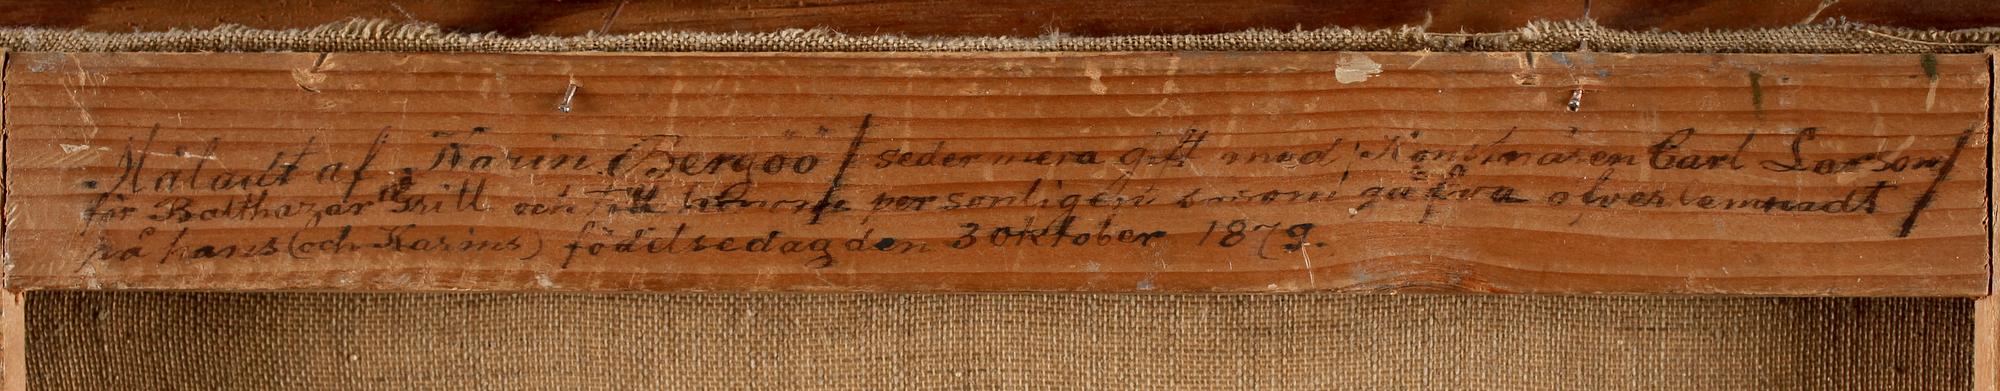 Måladt af Karin Bergöö / sedermera gift med Konstnären Carl Larson /
för Balthazar Grill och till honom personligen såsom gåfva öfverlemnadt
på hans (och Karins) födelsedag den 3 Oktober 1879.